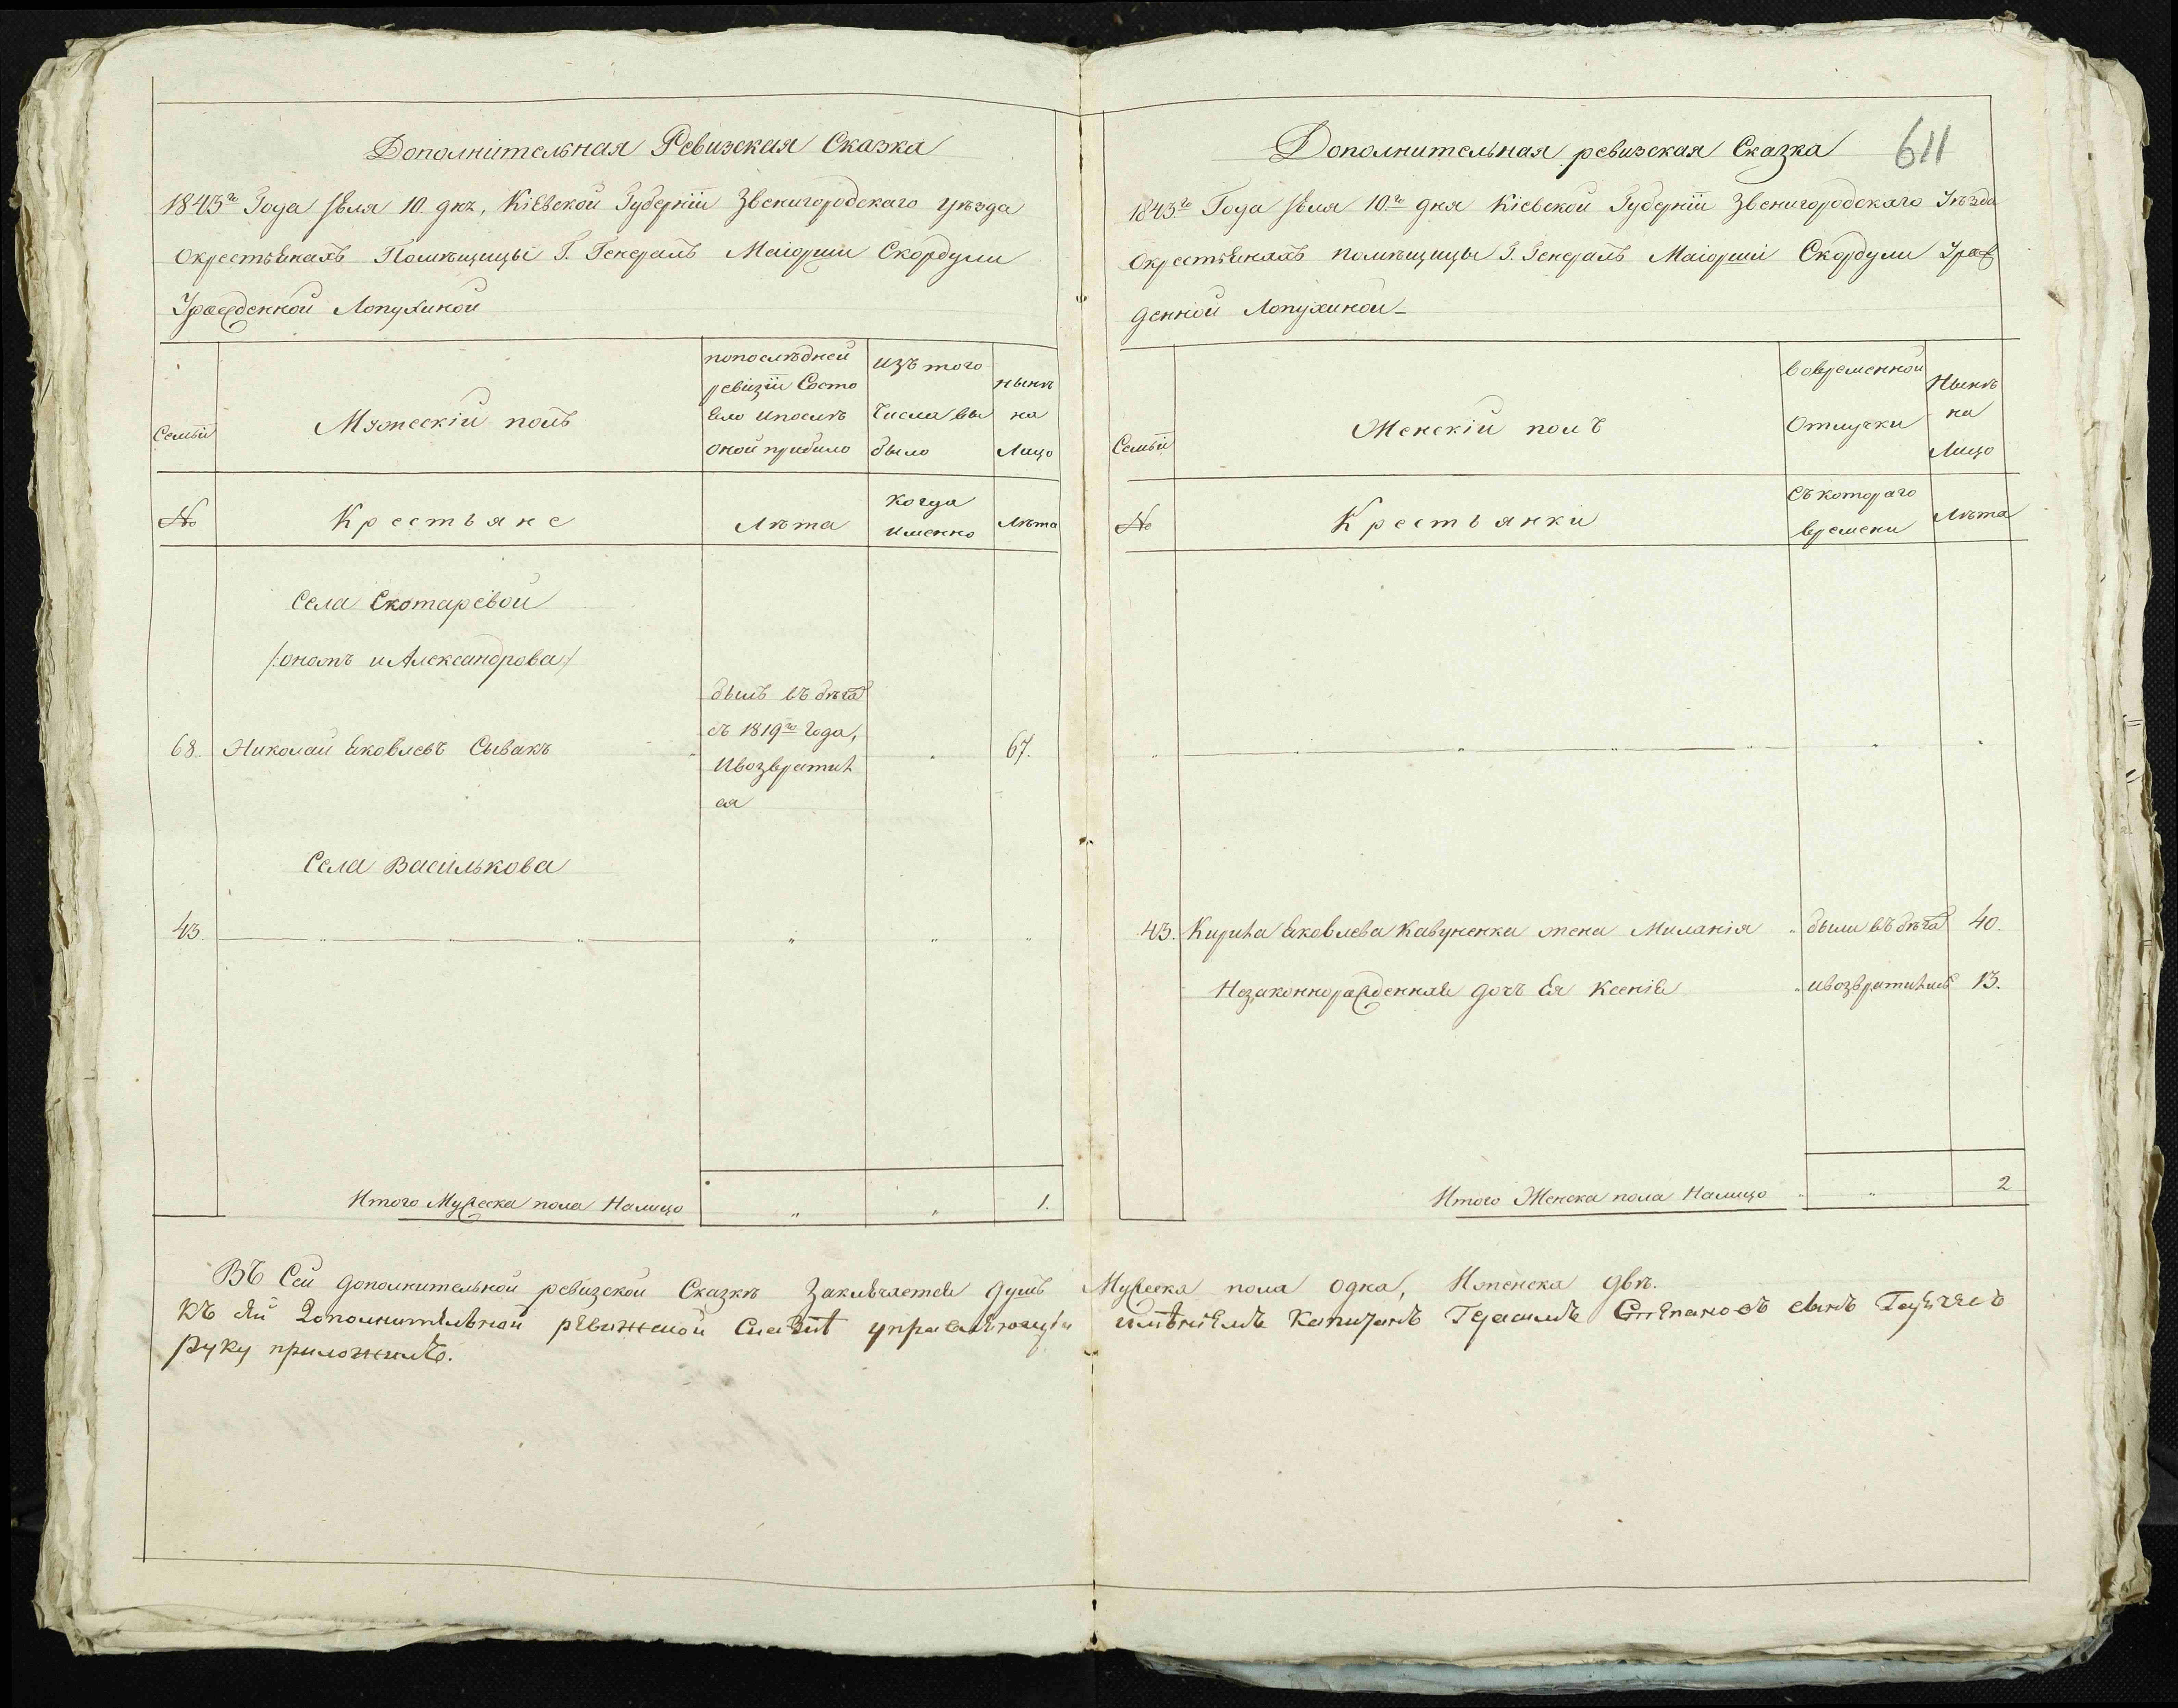 Дополнительная Ревизская Сказка
1843го Года Iюля 10. дня, Кіевской Губерніи Звенигородскаго уѣзда
окрестьянахъ Помѣщицы Г. Генералъ Маіорши Скордули
Урожденной Лопухиной
Семьи
Мужескій полъ
попослѣдней
ревизіи Состо
яло ипослѣ
оной прибыло
изъ того
числа вы
было
нынѣ
на
Лицо
№
Крестьяне
Лѣта
когда
именно
Лѣта
Села Скотаревой
/:онажъ иАлександрова:/
68. Николай Яковлевъ Сывакъ
былъ въ бѣгах
съ 1819го года,
ивозвратил
ся
67.
Села Василькова
43.
Итого Мужеска пола Налицо 1.
Дополнительная ревизская Сказка
611
1843го Года Iюля 10.го дня Кіевской Губерніи Звенигородскаго Уѣзда
окрестьянахъ помѣщицы Г. Генералъ Маіорши Скордули Урож
денной Лопухиной
Семьи
Женскій полъ
вовременной
Отлучки
Нынѣ
на
Лицо
№
Крестьянки
съ котораго
времени
Лѣта
43. Кирила Яковлева Кавуненка жена Миланія были въ бѣгах 40.
Незаконнорожденная дочь Ея Ксенія ивозвратились 13.
Итого Женска пола Налицо 2
Въ Сей дополнительной ревизской Сказкѣ Заключается душъ Мужеска пола одна, Иженска двѣ.
Къ сей Дополнительной ревижской Сказкѣ управляющій имѣніемъ Капитанъ Герасимъ Степановъ сынъ
Руку приложилъ.